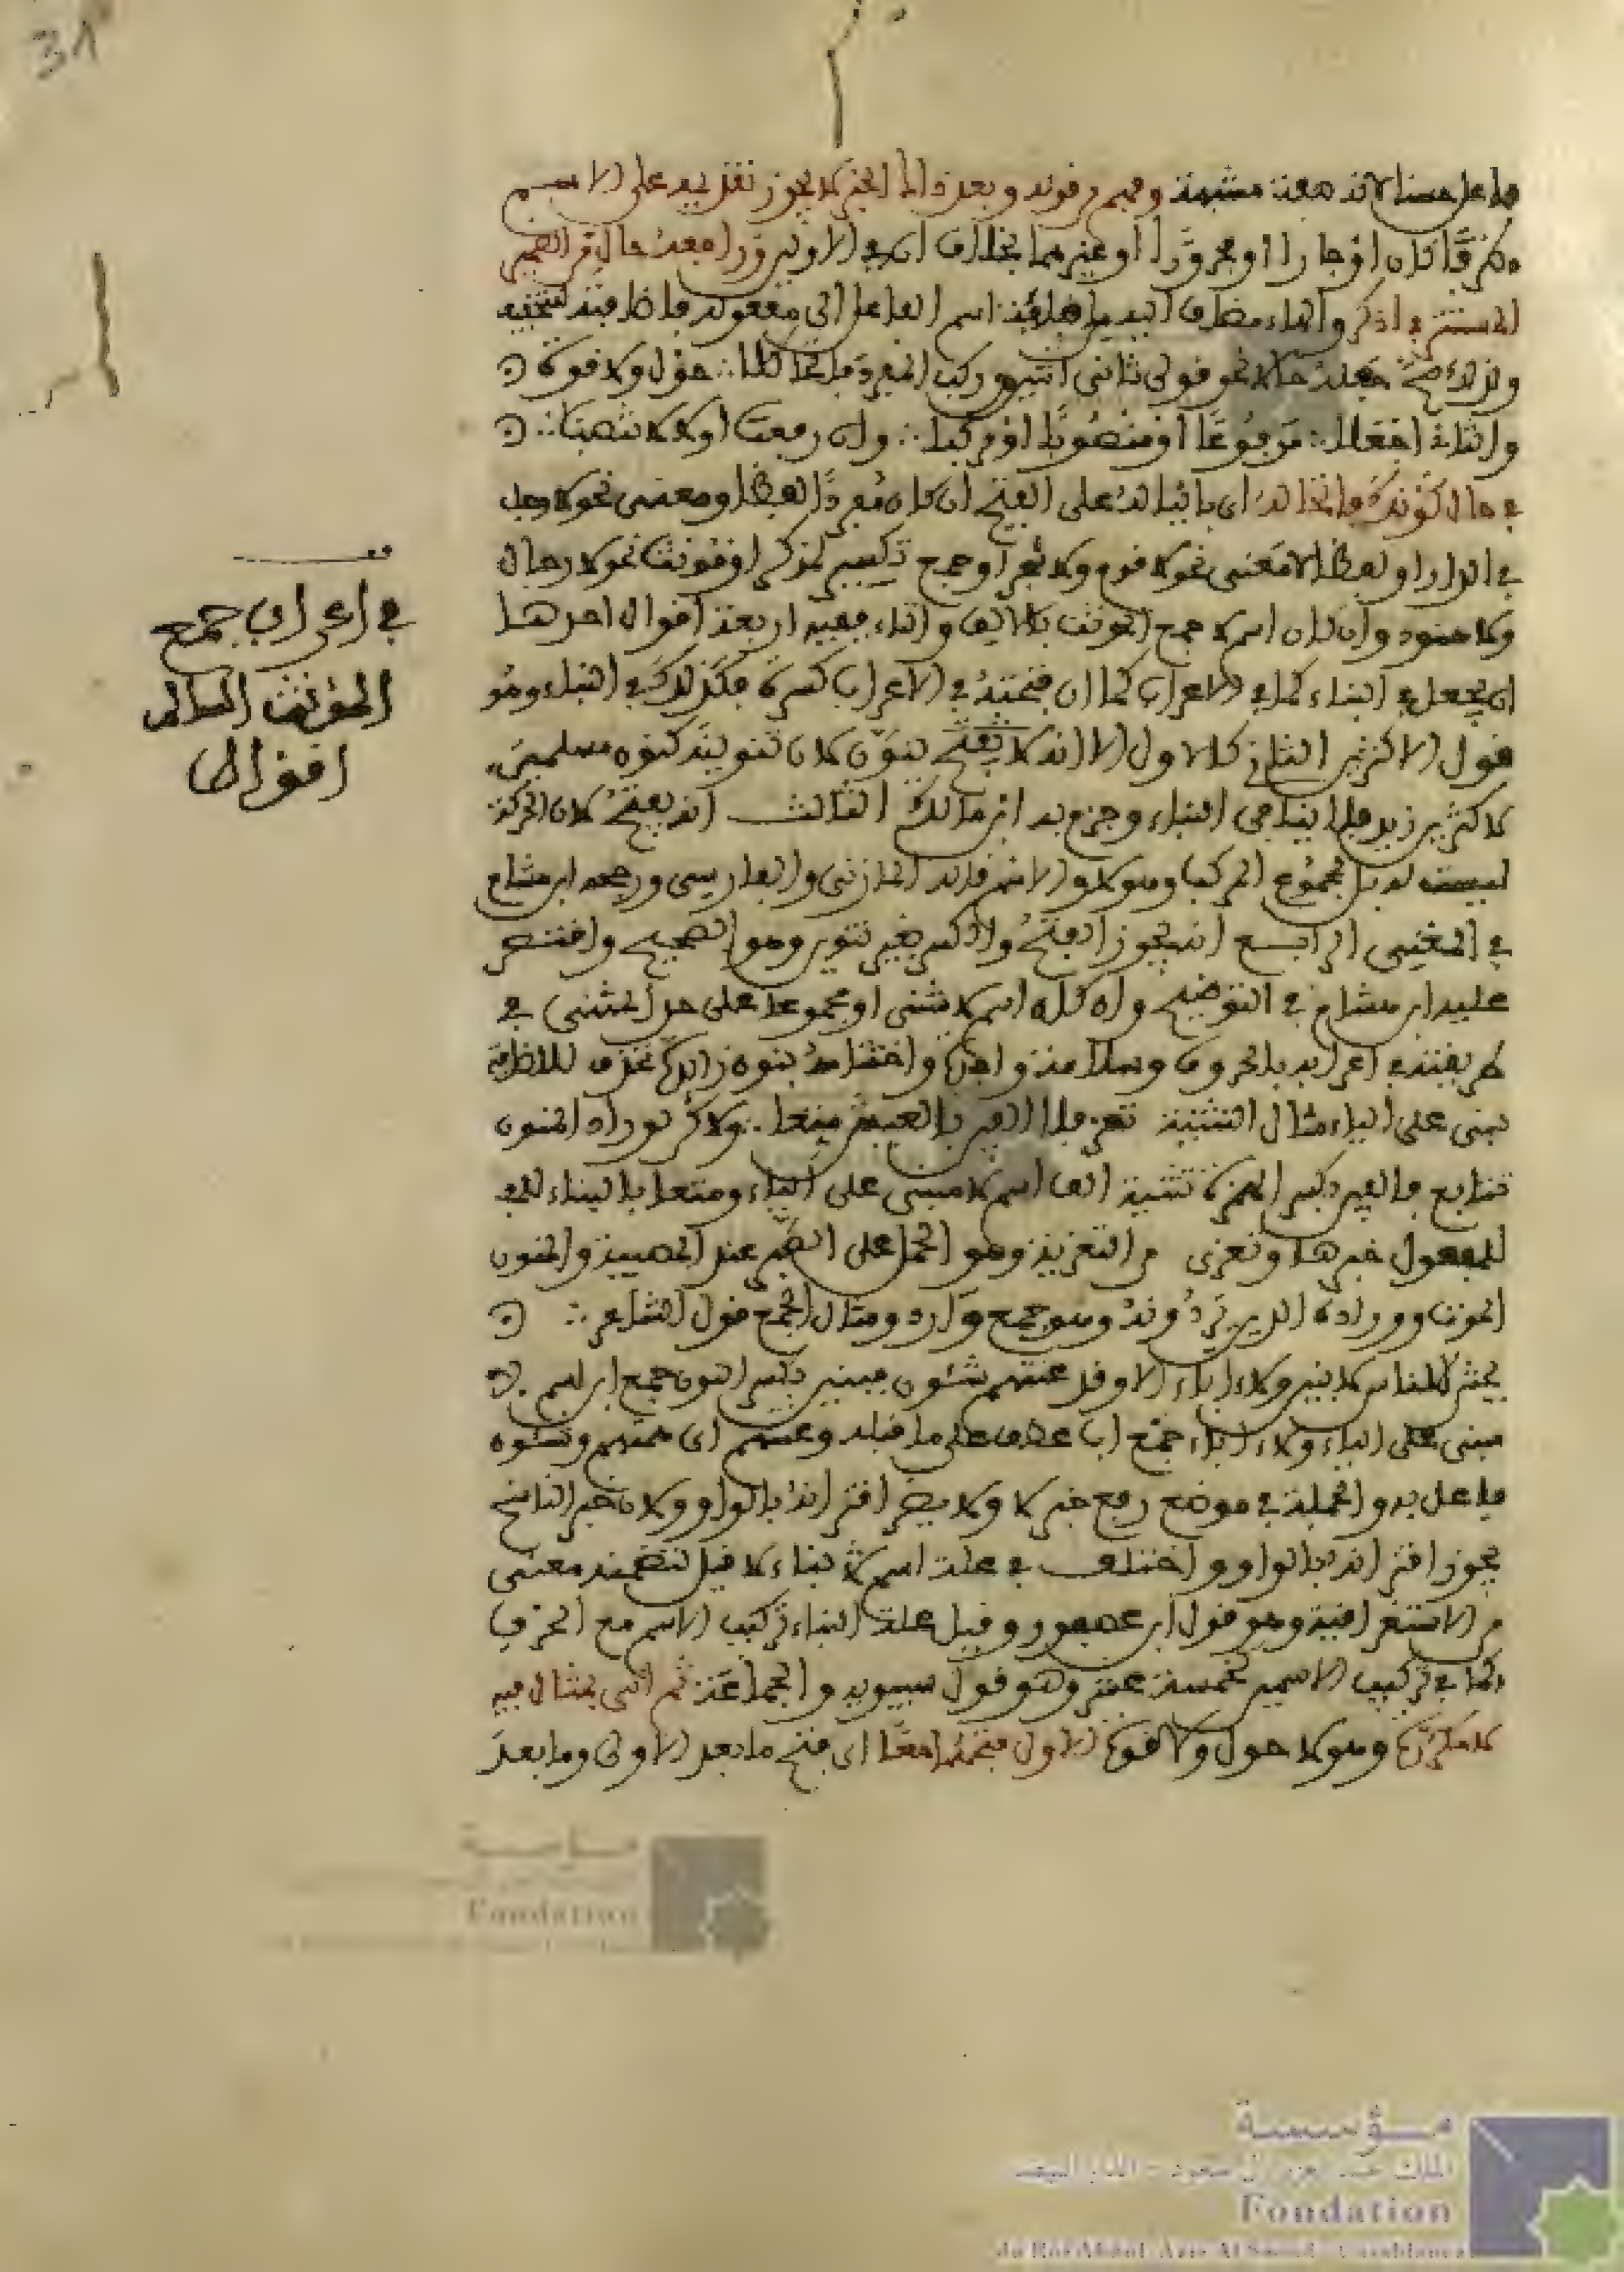 31
فاعل حسنا لانه صفة مشبهة وفهم من قوله وبعد ذاك الخبر لا يجوز تقديمه على الاسم
ظرفا كان او جارا او مجرورا او غيرهما بخلاف
المستتر في اذكر والهاء مضاف اليه من اضافة اسم الفاعل الى مفعوله
نحو قولي ثاني اثنين وركب المفرد فاتحا كلا :. حول ولا قوة
والثان اجعلا :. مرفوعا او منصوبا او مركبا :. وان رفعت اولا لا تنصبا :.
في حال كونك فاتحا له اي بانيا له على الفتح ان كان مفردا لفظا ومعنى نحو لا رجل
في الدار او لفظا لا معنى نحو لا قوم ولا نفر او جمع تكسير لمذكر او مؤنث نحو لا رجال
ولا هنود وان كان اسم لا جمع المؤنث بالالف والتاء ففيه اربعة اقوال احدها
ان يجعل في البناء كما في الاعراب كما ان فتحته في الاعراب كسرة فكذلك في البناء وهو
قول الاكثرين الثاني كالاول الا انه لا يفتح بنون لان تنوينه كنون مسلمين
لا كتنوين زيد فلا ينافي البناء وجزم به ابن مالك الثالث انه يفتح لان الحركة
ليست له بل لمجموع المركب وهو لا والاسم قاله المازني والفارسي ورجحه ابن هشام
في المغني الرابع انه يجوز الفتح والكسر بغير تنوين وهو الصحيح واقتصر
عليه ابن هشام في التوضيح وان كان اسم لا مثنى او مجموعا على حد المثنى في
طريقته في اعرابه بالحروف وسلامة واحده واختتامه بنون زائدة تحذف للاضافة
يبنى على الياء مثال التثنية تعز فلا الفين بالعيش متعا :. ولاكن لوراد المنون
تتابع فالفين بكسر الهمزة تثنية الف اسم لا مبني على الياء ومتعا بالبناء
للمفعول خبرها وتعزى من التعزية وهو الحمل على الصبر عند المصيبة والمنون
الموت ووراده الذين يردونه وهو جمع وارد ومثال الجمع قول الشاعر :.
يحشر الناس لا بنين ولا ءاباء الا وقد عنتهم شئون فبنين بكسر النون جمع ابن اسم لا
مبني على الياء ولا ءاباء جمع اب عطف على ما قبله وعنتهم اي همتهم وشئون
فاعل به والجملة في موضع رفع خبر لا ولا يضر اقترانه بالواو ولان خبر الناسخ
يجوز اقترانه بالواو واختلف في علة اسم لا بناء لا فقيل لتضمنه معنى
من الاستغراقية وهو قول ابن عصفور وقيل علة البناء تركيب الاسم مع الحرف
كما في تركيب الاسمين كخمسة عشر وهو قول سيبويه والجماعة ثم اتى بمثال فيه
وهو لا حول ولا قوة الاول فتحهما معا اي فتح ما بعد الاولى وما بعد
قف
في اعراب جمع
المؤنث السالم
اقوال
مؤسسة
Fondation
مؤسسة
الملك عبد العزيز آل سعود - الدار البيضاء
Fondation
du Roi Abdul-Aziz Al Saoud - Casablanca